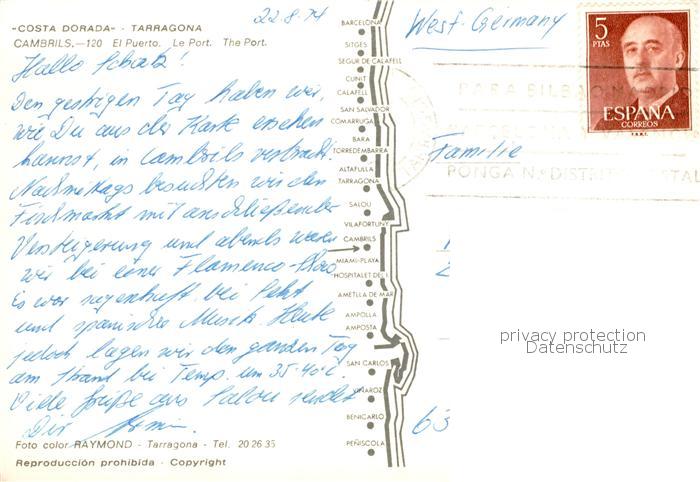 22.8.74
-COSTA DORADA- - TARRAGONA
CAMBRILS.—120 El Puerto. Le Port. The Port.
Hallo Schatz!
Den gestrigen Tag haben wir,
wie Du aus der Karte ersehen
kannst, in Cambrils verbracht.
Nachmittags besuchten wir den
Fischmarkt mit anschließender
Versteigerung und abends waren
wir bei einer Flamenco-Show
Es war sagenhaft bei Sekt
und spanischer Musik. Heute
jedoch lagen wir den ganzen Tag
am Strand bei Temp. um 35-40°C.
Viele Grüße aus Salou sendet
Dir Armin.
Foto color RAYMOND - Tarragona - Tel. 20 26 35
Reproducción prohibida - Copyright
BARCELONA
SITGES
SEGUR DE CALAFELL
CUNIT
CALAFELL
SAN SALVADOR
COMARRUGA
BARA
TORREDEMBARRA
ALTAFULLA
TARRAGONA
SALOU
VILAFORTUNY
CAMBRILS
MIAMI-PLAYA
HOSPITALET DEL I.
AMETLLA DE MAR
AMPOLLA
AMPOSTA
SAN CARLOS
VINAROZ
BENICARLO
PEÑISCOLA
West-Germany
5
PTAS
ESPAÑA
CORREOS
F.N.M.T.
PARA BILBAO
PONGA N.º DISTRITO POSTAL
Familie
63
privacy protection
Datenschutz